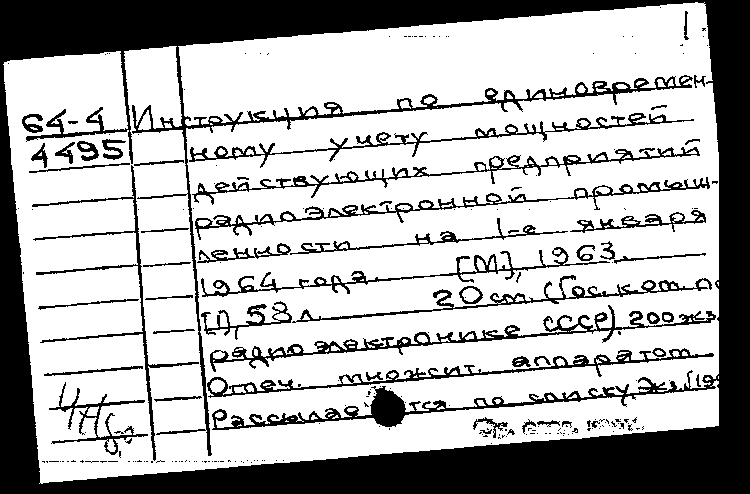 1
64-4 Инструкция по единовремен-
4495 ному учету мощностей
действующих предприятий
радиоэлектронной промыш-
ленности на 1-е января
1964 года. [М.], 1963.
[1], 58 л. 20 см. (Гос. ком. по
радиоэлектронике СССР). 200 экз.
Отпеч. множит. аппаратом.
Рассылается по списку. Экз. №